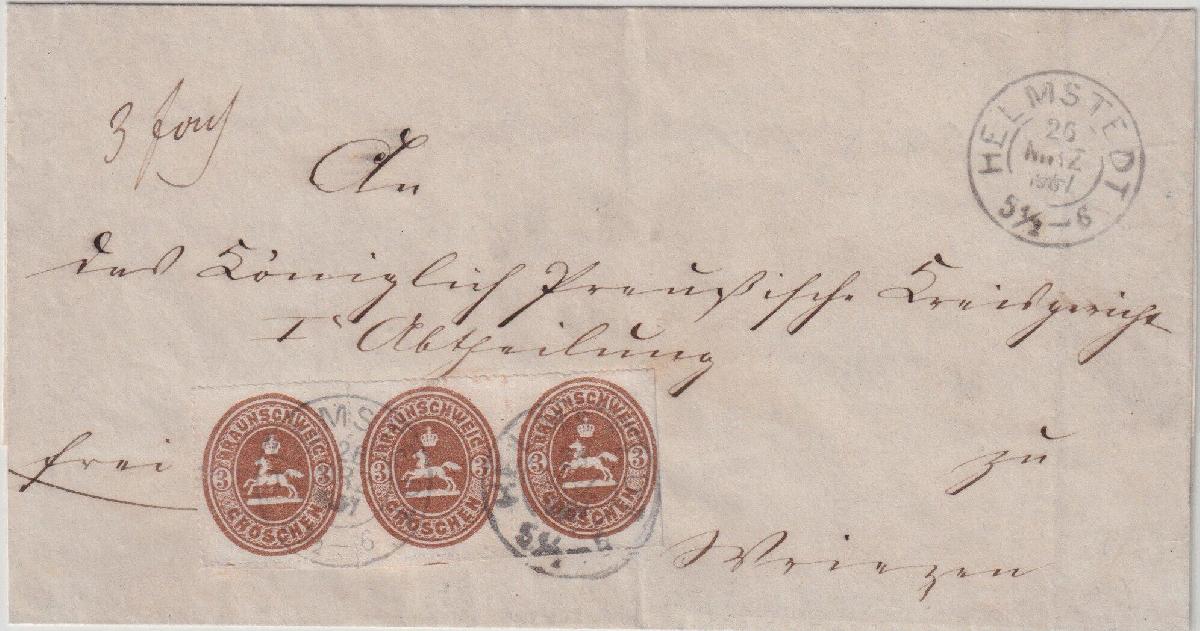 HELMSTEDT
26
MRZ
1867
5½-6
3 fach
An
das Königlich Preußische Kreisgericht
Iᵉ Abtheilung
BRAUNSCHWEIG 3 3 GROSCHEN
BRAUNSCHWEIG 3 3 GROSCHEN
BRAUNSCHWEIG 3 3 GROSCHEN
5½-6
frei
zu
Wriezen